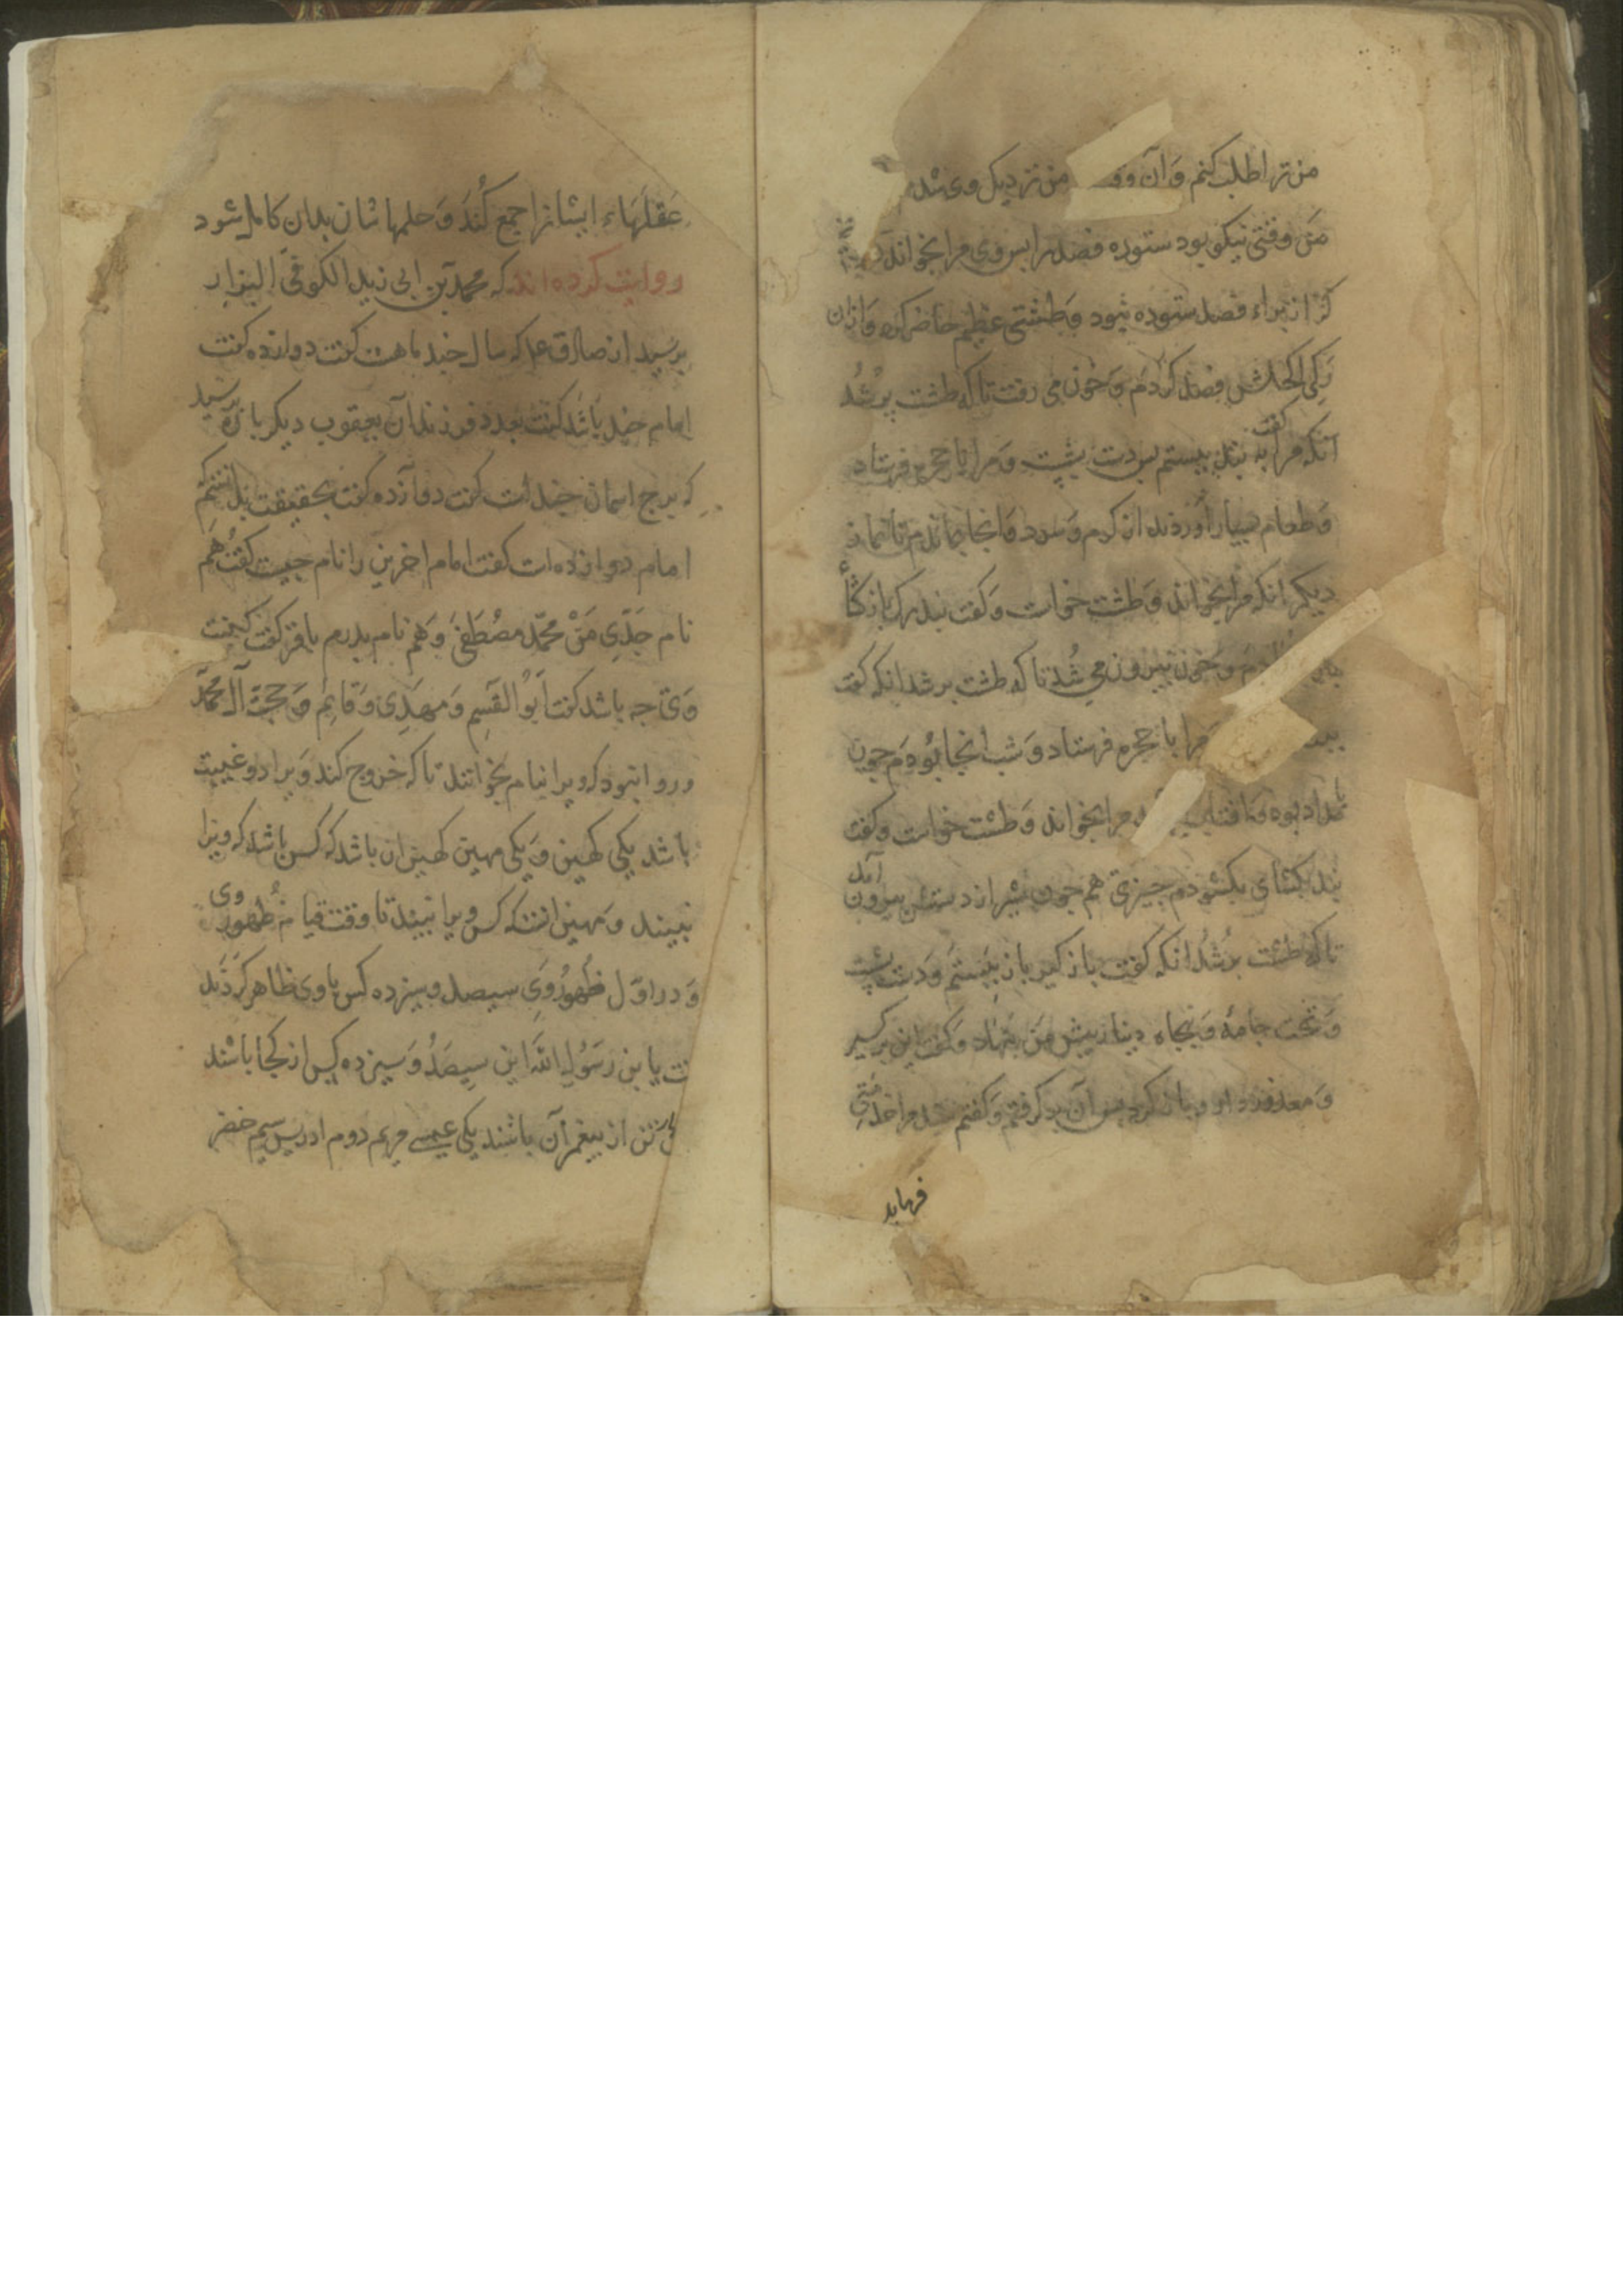 من ترا طلب کنم وَ آن وقـ من نزدیک وی شد
مَن وقتی نیکو بود ستوده فصد را بس وی مرا بخواند
کز از براء فصد ستوده نبود وَ طشتی عظیم حاضر کرد وَ ازان
رَکی اکحلش فصد کردم وَ خون می رفت تا که طشت پر شُد
انکه مرا کفت به بند ببستم بس دست بشست وَ مرا با حجره فرستاد
وَ طعام بسیار آوردند از کرم وَ سرد وَ انجا بماندم تا نماز
دیکر انکه مرا بخواند وَ طشت خواست وَ کفت بند رک باز کشأ
وَ خون بیرون می شُد تا که طشت بر شد انکه کفت
ببند مرا با حجره فرستاد وَ شب انجا بُودم جون
بامداد بوه وَ افتاب مرا بخواند وَ طشت خواست وکفت
بند بکشای بکشودم جیزی هم جون شیر از دستش بیرون آمد
تا که طشت بر شُد انکه کفت باز کیر باز ببستم وَ دست بشست
وَ تخت جامهٔ وَ بنجاه دینار بیش مَن بنهاد وَ کفت این بر کیر
وَ معذور دار وباز کرد بس آن بر کرفتم وَ کفتم سید مرا خدمتی
فرماید
عَقلهَاء ایشانرا جمع کُنَد وَ حلمها شان بدان کامل شود
روایت کرده اند که محمد بن ابی زید الکوفی البزار
برسید از صادق ع که سال جند ماهست کفت دوازده کفت
امام جند باشد کفت بعدد فرزندان یعقوب دیکر باره برسید
که برج اسمان جند است کفت دوازده کفت بحقیقت بدانستم
امام دوازده است کفت امام اخرین را نام جیست کفت هَم
نام جَدّی مَنْ محمّد مصُطَفَی وَ هم نام بدرم باقر کفت کنیت
وَی جه باشد کفت اَبوُ القَسِم وَ مهَدِی وَ قایم وَ حجة آل محمّد
و روا نبود که ویرا بنام بخوانند تا که خروج کند وَیرا دو غیبت
باشد یکی کهین وَ یکی مهین کهین ان باشد که کس باشد که ویرا
نبیند وَ مهین انست که کس ویرا نبیند تا وقت قیام ظُهور وی
وَ در اوّل ظُهوُر وَیِ سیصد و سیزده کس با وی ظاهر کردَند
کفت یا بن رسَوُل اللّه این سیصَدُ وَ سیزده کس از کجا باشند
تن از بیغمبرآن باشند یکی عیسے مریم دوم ادریس سیم خضر